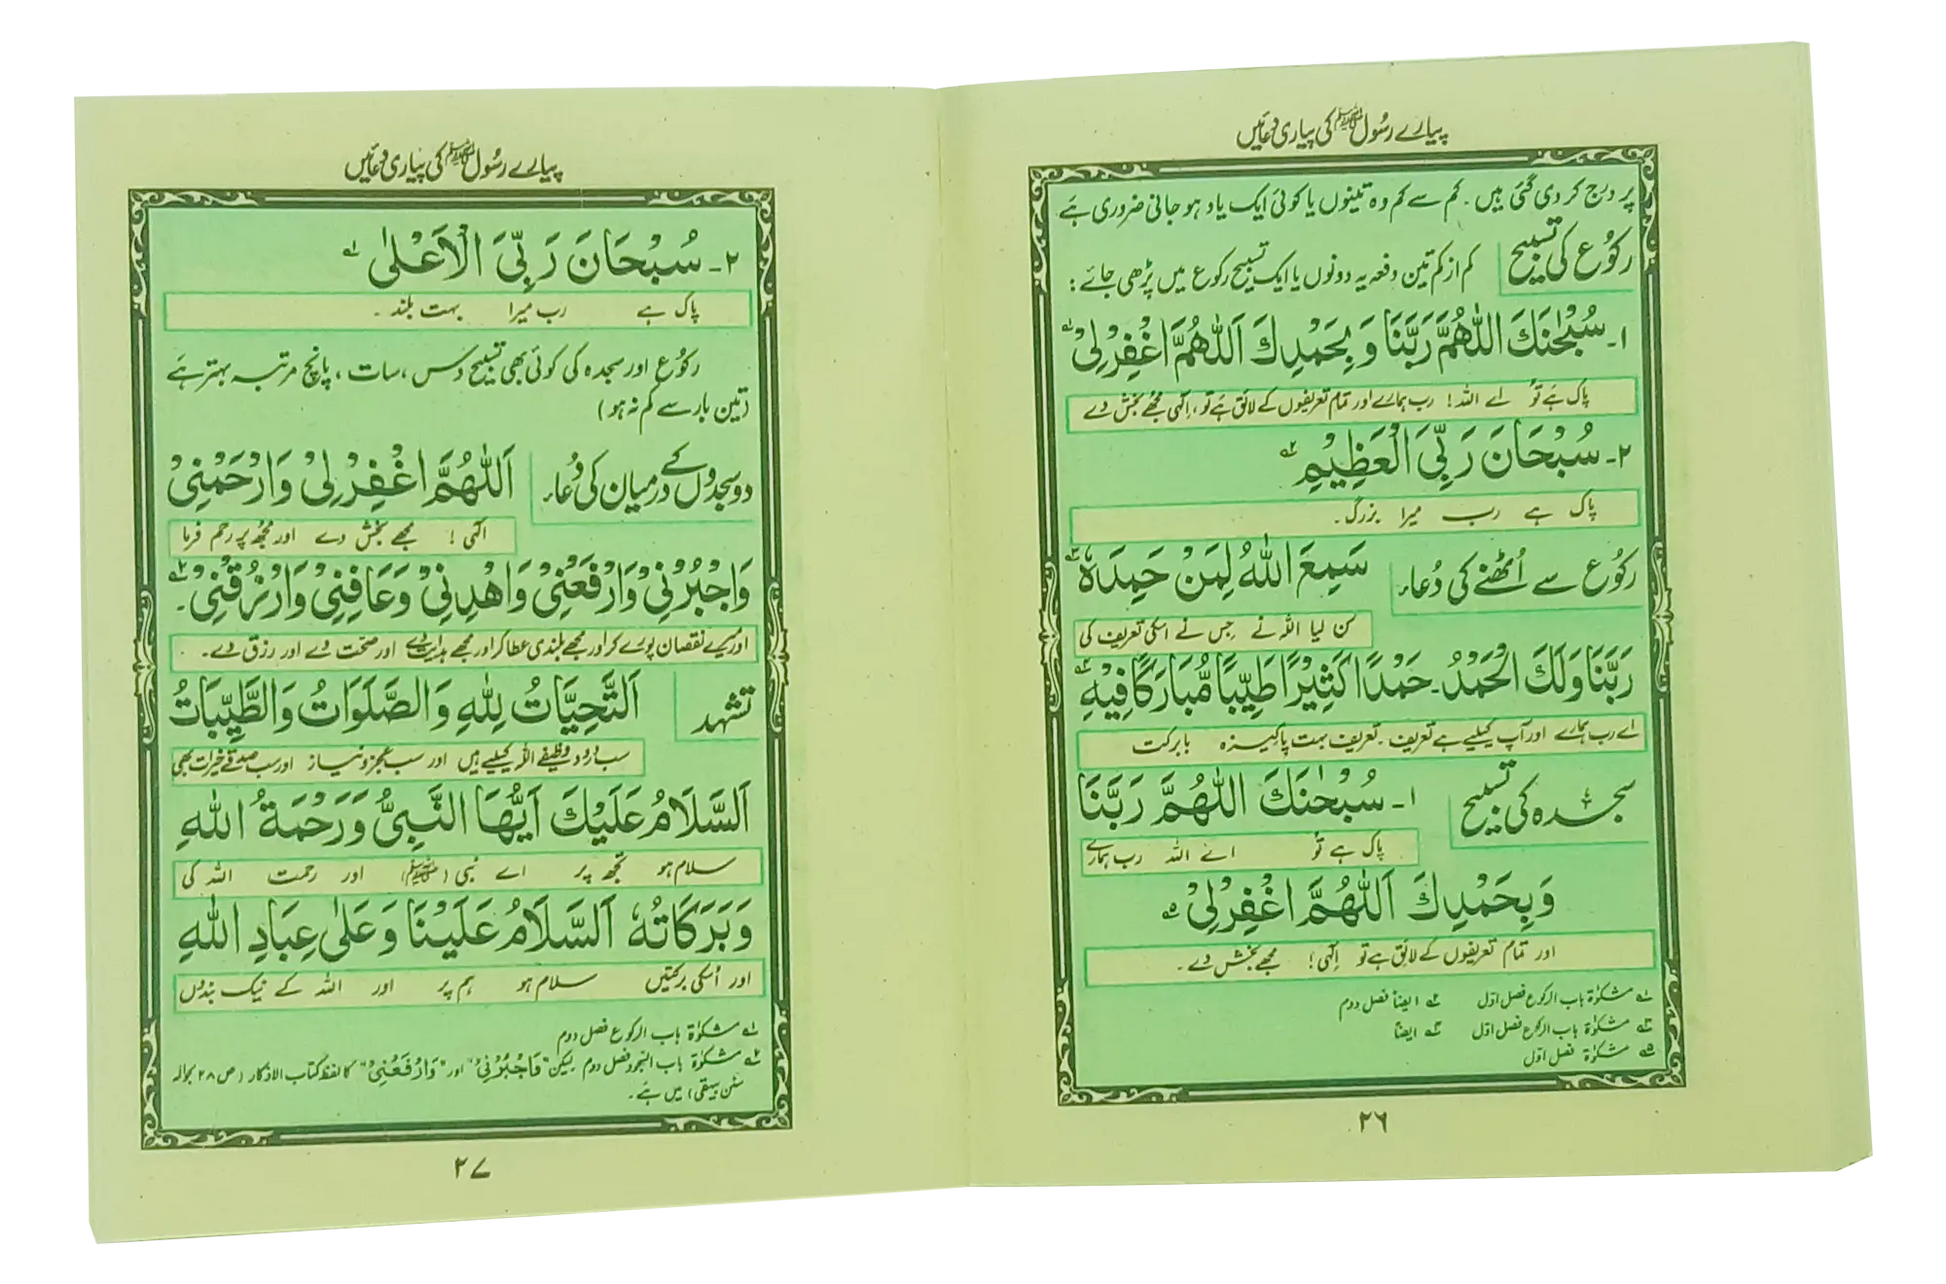 پیارے رسول ﷺ کی پیاری دعائیں
پر درج کر دی گئی ہیں۔ کم سے کم وہ تینوں یا کوئی ایک یاد ہو جانی ضروری ہے
رکوع کی تسبیح کم از کم تین دفعہ یہ دونوں یا ایک تسبیح رکوع میں پڑھی جائے:
۱۔ سُبْحٰنَكَ اللّٰهُمَّ رَبَّنَا وَبِحَمْدِكَ اَللّٰهُمَّ اغْفِرْلِىْ ؎۱
پاک ہے تُو اے اللہ! رب ہمارے اور تمام تعریفوں کے لائق ہے تو، الٰہی مجھے بخش دے
۲۔ سُبْحَانَ رَبِّىَ الْعَظِيْمِ ؎۲
پاک ہے رب میرا بزرگ۔
رکوع سے اُٹھنے کی دُعاء سَمِعَ اللهُ لِمَنْ حَمِدَهٗ ؎۳
سن لیا اللہ نے جس نے اسکی تعریف کی
رَبَّنَا وَلَكَ الْحَمْدُ۔ حَمْدًا كَثِيْرًا طَيِّبًا مُّبَارَكًا فِيْهِ ؎۴
اے رب ہمارے اور آپ کیلیے ہے تعریف۔ تعریف بہت پاکیزہ بابرکت
سجدہ کی تسبیح ۱۔ سُبْحٰنَكَ اللّٰهُمَّ رَبَّنَا
پاک ہے تُو اے اللہ رب ہمارے
وَبِحَمْدِكَ اَللّٰهُمَّ اغْفِرْلِىْ ؎۵
اور تمام تعریفوں کے لائق ہے تو الٰہی! مجھے بخش دے۔
؎۱ مشکوٰۃ باب الرکوع فصل اوّل ؎۲ ایضاً فصل دوم
؎۳ مشکوٰۃ باب الرکوع فصل اوّل ؎۴ ایضاً
؎۵ مشکوٰۃ فصل اوّل
۲۶
پیارے رسول ﷺ کی پیاری دعائیں
۲۔ سُبْحَانَ رَبِّىَ الْاَعْلىٰ ؎۱
پاک ہے رب میرا بہت بلند۔
رکوع اور سجدہ کی کوئی بھی تسبیح دس، سات، پانچ مرتبہ بہتر ہے
(تین بار سے کم نہ ہو)
دو سجدوں کے درمیان کی دُعاء اَللّٰهُمَّ اغْفِرْلِىْ وَارْحَمْنِىْ
الٰہی! مجھے بخش دے اور مجھ پر رحم فرما
وَاجْبُرْنِىْ وَارْفَعْنِىْ وَاهْدِنِىْ وَعَافِنِىْ وَارْزُقْنِىْ۔ ؎۲
اور میرے نقصان پورے کر اور مجھے بلندی عطا کر اور مجھے ہدایت دے اور صحت دے اور رزق دے۔
تشہد اَلتَّحِيَّاتُ لِلّٰهِ وَالصَّلَوَاتُ وَالطَّيِّبَاتُ
سب درود وظیفے اللہ کیلیے ہیں اور سب عجز و نیاز اور سب صدقے خیرات بھی
اَلسَّلَامُ عَلَيْكَ اَيُّهَا النَّبِىُّ وَرَحْمَةُ اللهِ
سلام ہو تجھ پر اے نبی (ﷺ) اور رحمت اللہ کی
وَبَرَكَاتُهٗ اَلسَّلَامُ عَلَيْنَا وَعَلىٰ عِبَادِ اللهِ
اور اُسکی برکتیں سلام ہو ہم پر اور اللہ کے نیک بندوں
؎۱ مشکوٰۃ باب الرکوع فصل دوم
؎۲ مشکوٰۃ باب السجود فصل دوم لیکن "وَاجْبُرْنِىْ" اور "وَارْفَعْنِىْ" کا لفظ کتاب الاذکار (ص ۲۸ بحوالہ
سنن بیہقی) میں ہے۔
۲۷